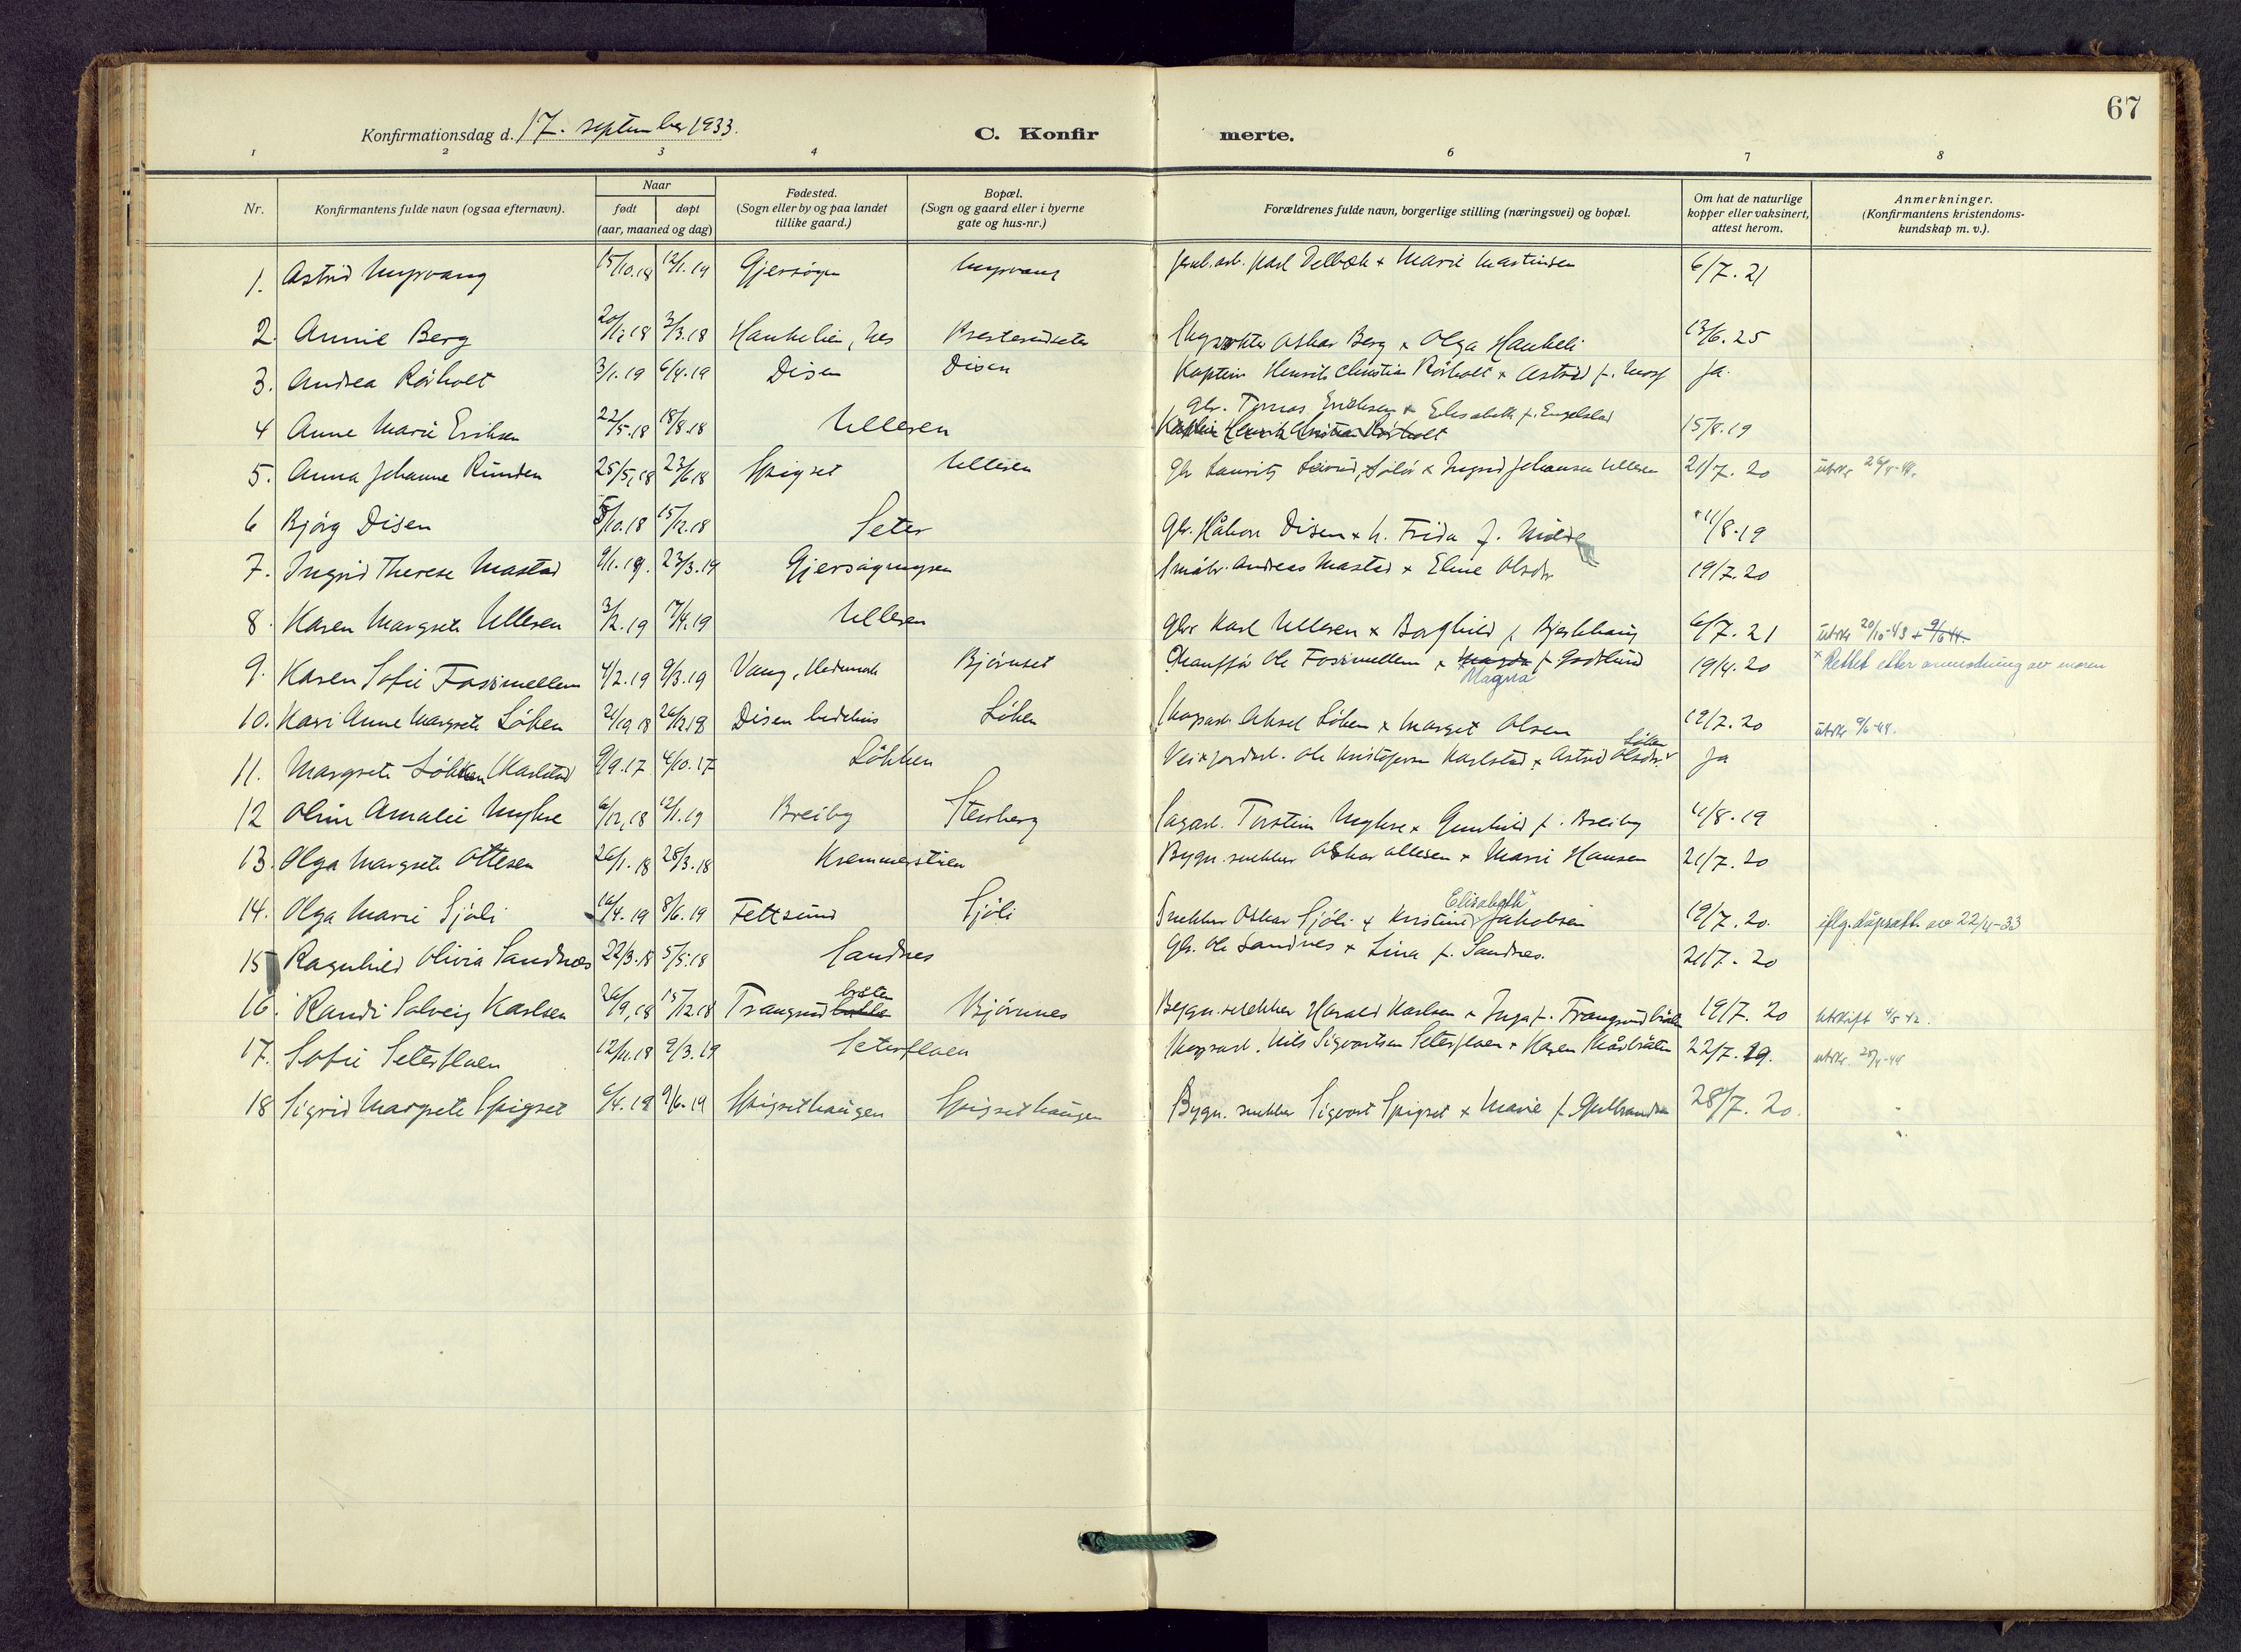 67
Konfirmationsdag d. 17. september 1933.
C. Konfirmerte.
1 2 3 4 6 7 8
Nr.
Konfirmantens fulde navn (ogsaa efternavn).
Naar født døpt (aar, maaned og dag)
Fødested. (Sogn eller by og paa landet tillike gaard.)
Bopæl. (Sogn og gaard eller i byerne gate og hus-nr.)
Forældrenes fulde navn, borgerlige stilling (næringsvei) og bopæl.
Om hat de naturlige kopper eller vaksinert, attest herom.
Anmerkninger. (Konfirmantens kristendomskundskap m. v.).
1. Astrid Myrvang 15/10.18 12/1.19 Myrvang Marie Martinsen 6/7.21
2. Annie Berg 3/3.18 Oskar Berg x Olga Haukeli 13/6.25
3. Andrea Rörholt 3/1.19 6/4.19 Disen Disen Kaptein Henrik Christian Rörholt x Astrid f. ja.
4 Anne Marie Eriksen 22/5.18 18/8.18 Ulleren Gbr. Tomas Eriksen x Elisabeth f. Engelstad
Kaptein Henrik Christian Rörholt 15/8.19
5. Anna Johanne Runden 25/5.18 23/6.18 Spigset Ulleren Gbr Lauritz x Ingrid Johansen Ulleren 21/7.20
6 Bjørg Disen 15/12.18 Seter Gbr. Håkon Disen x h. Frida f. 11/8.19
7. Ingrid Therese Mastad 9/1.19. 23/3.19 Gjersøgmyren Småbr. Andreas Mastad x Eline Olsdtr. 19/7.20
8. Karen Margrete Ulleren 3/2.19 17/4.19 Ulleren Gbr Karl Ulleren x Borghild f. 6/7.21 utskr 20/10-43 + 9/6 44.
9. Karen Sofie Fossmellem 4/2.19 9/3.19 Vang, Hedmark Bjørnset Chauffør Ole Fossmellem x Magda f. Godtlund
Magna 19/4.20 x Rettet etter anmodning av moren
10. Kari Anne Margrete Löken Disen bedehus Löken Aksel Löken x Marget Olsen 19/7.20 utskr 9/6-44.
11. Margrete Løkken (Karlstad) 9/9.17 4/10.17 Løkken Ole Kristofersen Karlstad x Astrid Olsdtr. ja
12 Oline Amalie Myhre 6/12.18 12/1.19 Breiby Stensberg Sagarb. Torstein Myhre x Gunhild f. Breiby 4/8.19
13. Olga Margrete Ottesen 26/1.18 28/3.18 Kremmerstuen Bygn. snekker Oskar Ottesen x Marie Hansen 21/7.20
14. Olga Marie Sjøli 16/4.19 8/6.19 Fettsund Sjøli Snekker Oskar Sjøli x Kristine Jakobsen
Elisabeth x 19/7.20. iflg. dåpsatt. av 22/4-33
15 Ragnhild Olivia Sandnes 22/3.18 5/5.18 Sandnes Gbr. Ole Sandnes x Lina f. Sandnes. 21/7.20
16. Randi Solveig Karlsen 26/9.18 15/12.18 Trangsrud
bråten Bjørnnes Bygn. snekker Harald Karlsen x Inga f. Trangsrudbråten 19/7.20 utskrift 4/5 42.
17. Sofie Seterflaen 12/11.18 9/3.19 Seterflaen Skogsarb. Nils Sigvartsen Seterflaen x Karen Skårbråten 22/7.19.
18 Sigrid Margrete Spigset 6/4.19 9/6.19 Spigsethaugen Spigsethaugen Bygn. snekker Sigvart Spigset x Marie f. Gulbrandsen 28/7.20.